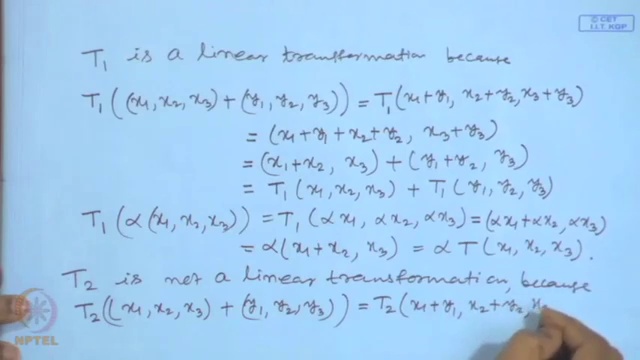 © CET
I.I.T. KGP
T₁ is a linear transformation because
T₁((x₁, x₂, x₃) + (y₁, y₂, y₃)) = T₁(x₁+y₁, x₂+y₂, x₃+y₃)
= (x₁+y₁+x₂+y₂, x₃+y₃)
= (x₁+x₂, x₃) + (y₁+y₂, y₃)
= T₁(x₁, x₂, x₃) + T₁(y₁, y₂, y₃)
T₁(α(x₁, x₂, x₃)) = T₁(αx₁, αx₂, αx₃) = (αx₁+αx₂, αx₃)
= α(x₁+x₂, x₃) = αT(x₁, x₂, x₃).
T₂ is not a linear transformation, because
T₂((x₁, x₂, x₃) + (y₁, y₂, y₃)) = T₂(x₁+y₁, x₂+y₂, x₃
NPTEL